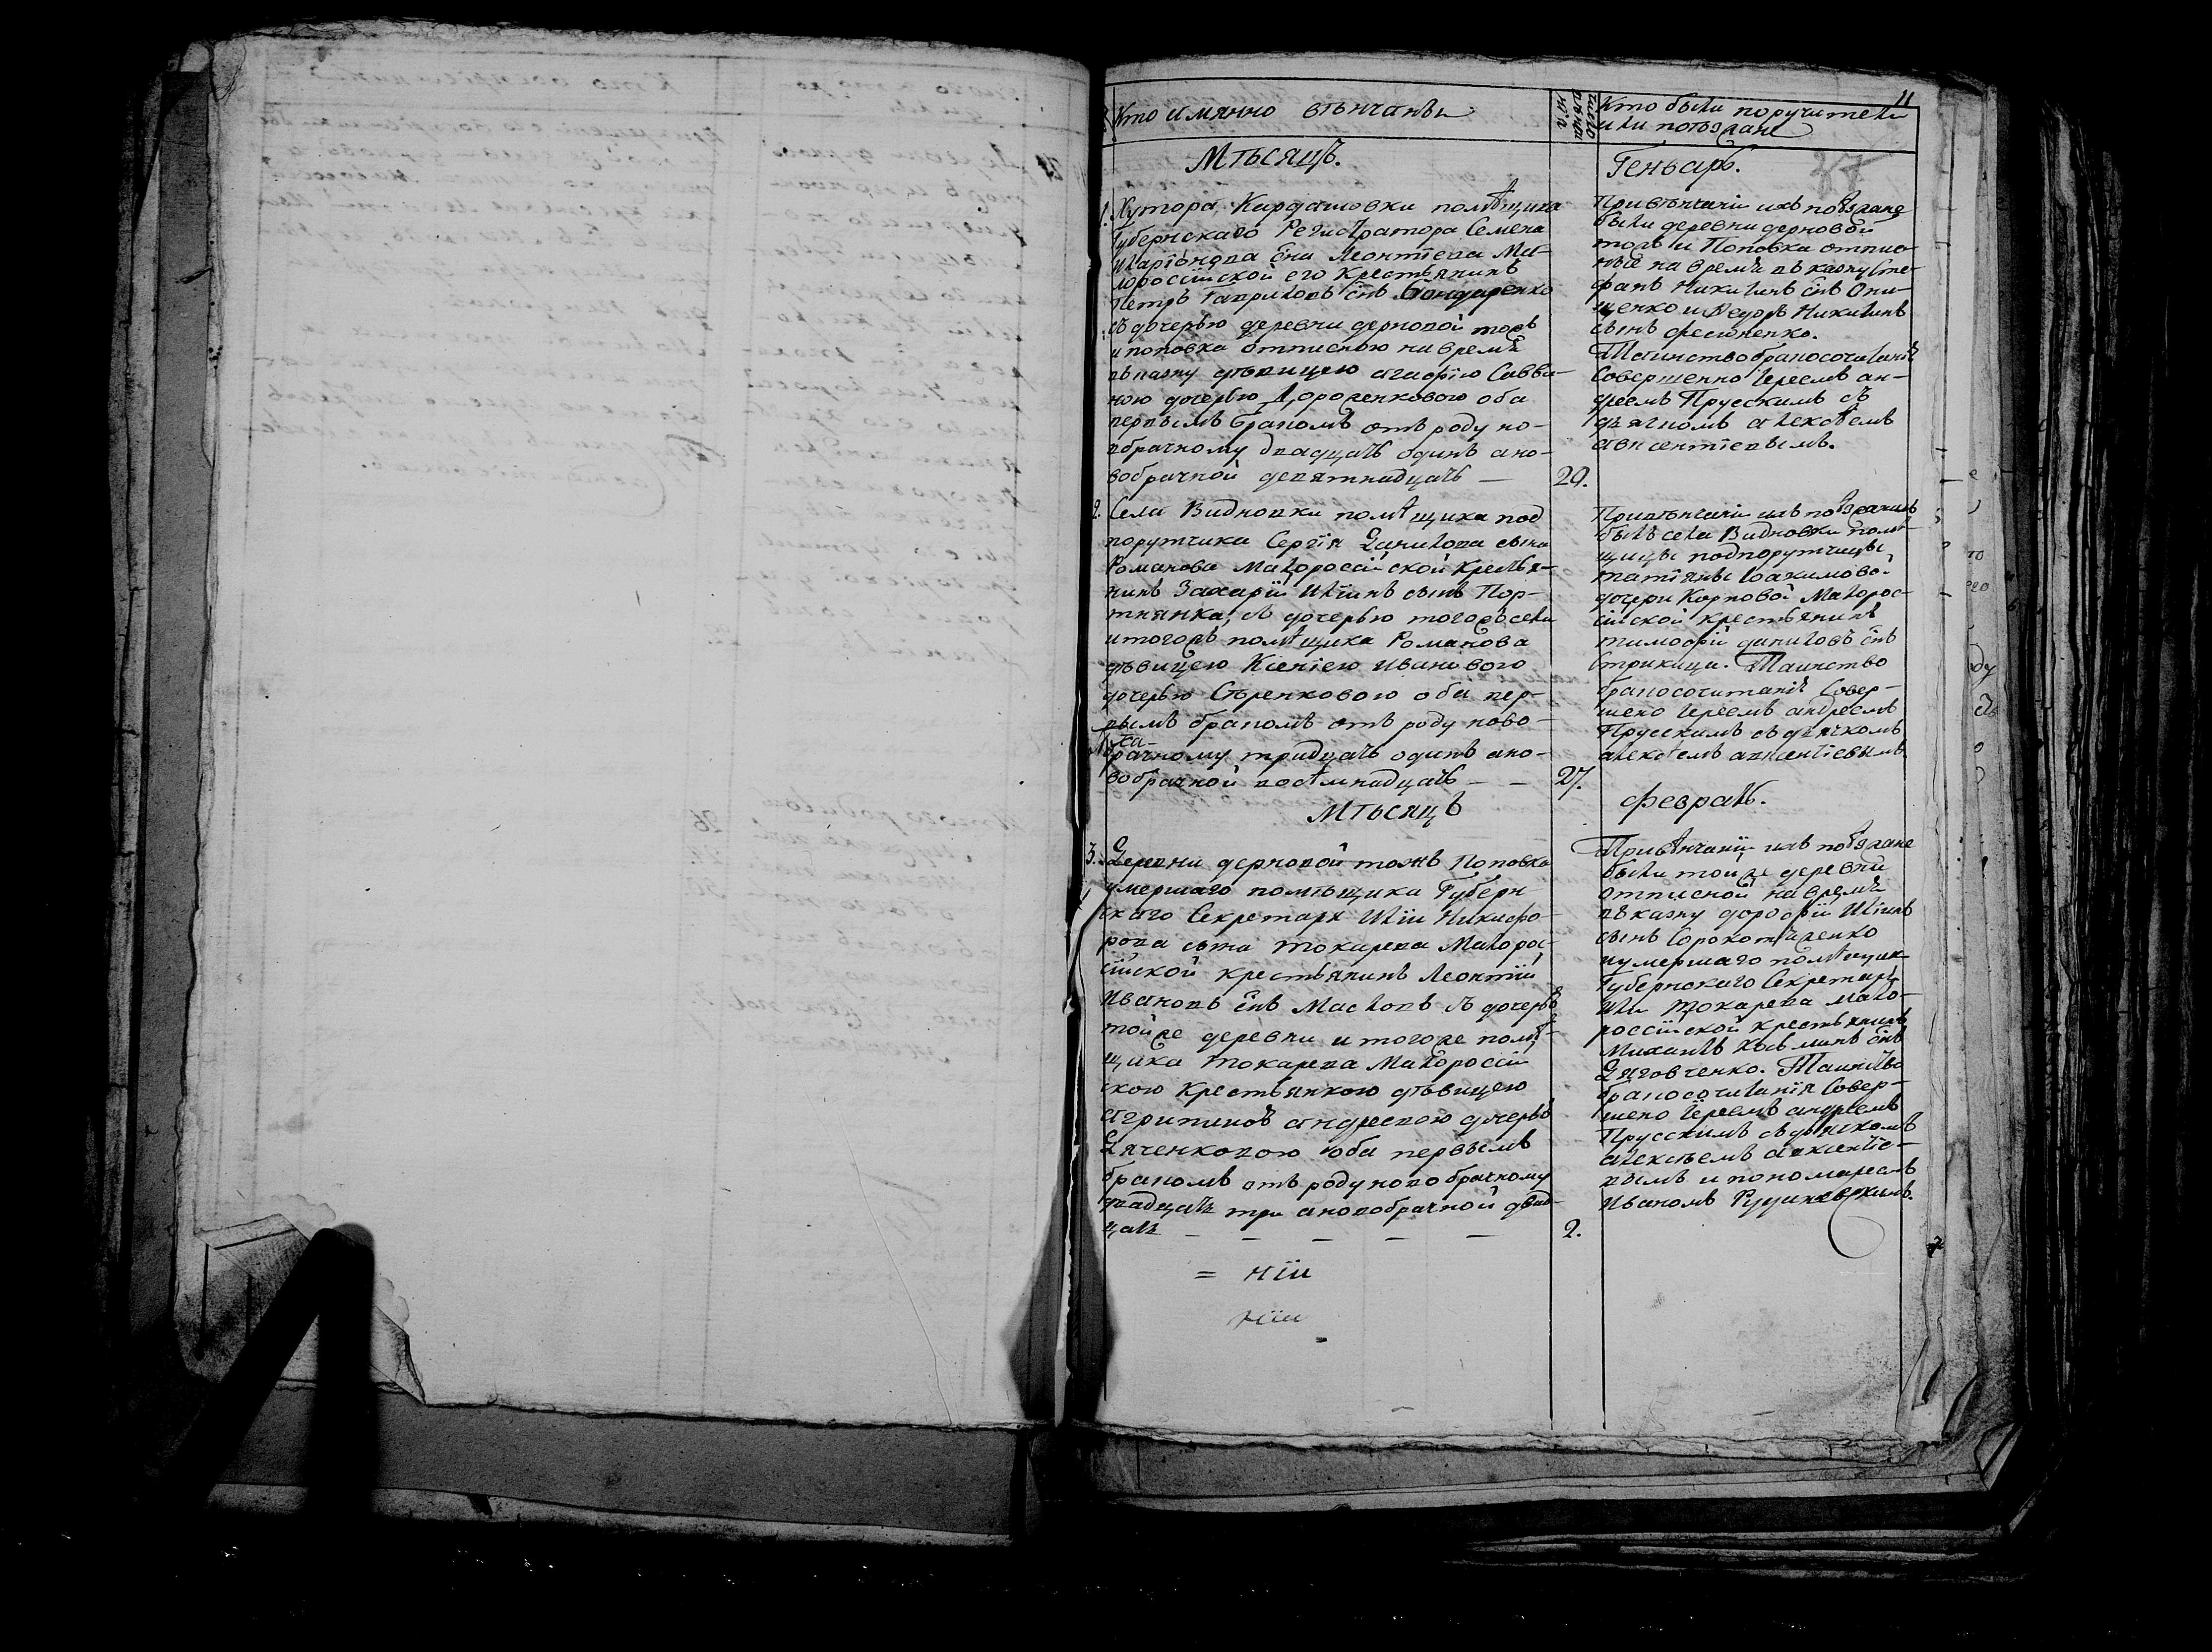 11
Кто имянно вѣнчаны
число вѣнчанія
Кто были поручители
или поѣзжане
Мѣсяцъ.
Геньварь.
37
1. Хутора Кардашовки помѣщика
Губернскаго Регистратора Семена
Иларіонова сна Леонтіева Ма-
лоросійской его Крестьянинъ
Петръ Гавриловъ снъ Бондаренко
съ дочерью деревни дерновой тожъ
и поповка отписною на время
въ казну дѣвицею агафію Савви-
ною дочерью Дороженковою оба
первымъ бракомъ отъ роду но-
вобрачному двадцать одинъ а но-
вобрачной девятнадцать —
29.
Привѣнчаніи ихъ поѣзжане
были деревни дерновой
тожъ и Поповка отписно-
ные на время въ казну Сте-
фанъ Никитинъ снъ Они-
щенко и Федоръ Никитинъ
сынъ Фесюненко.
Таинство бракосочитаніе
Совершенно Іереемъ ан-
дреемъ Прусскимъ съ
дьячкомъ алексѣемъ
авксентіевымъ.
2. Села Видновки помѣщика под
порутчика Сергія Данилова сына
Романова Малоросійской Крестья-
нинъ Захарій Иліинъ сынъ Пор-
тнянка, съ дочерью тогожъ села
и тогожъ помѣщика Романова
дѣвицею Ксеніею Ивановою
дочерью Стренковою оба пер-
вымъ бракомъ отъ роду ново-
брачному тридцать одинъ а но-
вобрачной восѣмнадцать — —
27.
Привѣнчаніи ихъ поѣзжанинъ
былъ села Видновки помѣ-
щицы подпорутчицы
татіяны Іоакимовой
дочери Карповой Малорос-
сійской крестьянинъ
тимофій даниловъ снъ
Стрижица. Таинство
бракосочитаніе Совер-
шено Іереемъ андреемъ
Прусскимъ съ дячкомъ
алексѣемъ авксентіевымъ
Мѣсяцъ
Февраль.
3. Деревни дерновой тожъ Поповка
умершаго помѣщика Губерн
скаго Секретаря Иліи Никифо-
рова сына токарева Малорос-
сійской крестьянинъ Леонтій
Ивановъ снъ Масловъ съ дочерью
тойже деревни и тогоже помѣ-
щика токарева Малоросій
скою Крестьянкою дѣвицею
агрипиною андреевою дочерью
Дяченковою оба первымъ
бракомъ отъ роду новобрачному
двадцать три а новобрачной двад-
цать — — — — —
2.
Привѣнчаніи ихъ поѣзжане
были тойже деревни
отписной на время
въ казну дорофій Иліинъ
сынъ Сорокотяженко
и умершаго помѣщика
Губернскаго Секретаря
Иліи токарева мало-
россійской крестьянинъ
Михаилъ Косминъ снъ
Дяговченко. Таинство
бракосочитанія Совер-
шено Іереемъ андреемъ
Прусскимъ съ дьячкомъ
алексѣемъ авксентіе-
вымъ и пономаремъ
Иваномъ
= нiи
нiи